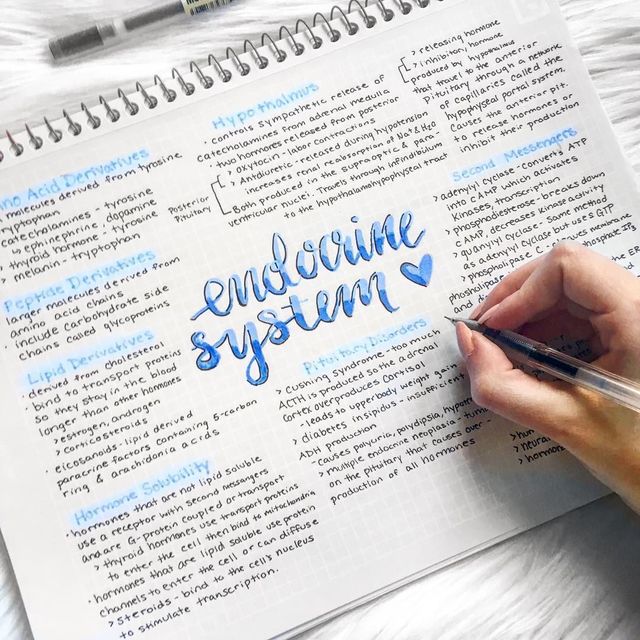 Amino Acid Derivatives
molecules derived from tyrosine
tryptophan
catecholamines - tyrosine
> epinephrine, dopamine
> thyroid hormone - tyrosine
> melanin - tryptophan
Peptide Derivatives
larger molecules derived from
amino acid chains
include carbohydrate side
chains called glycoproteins
Lipid Derivatives
· derived from cholesterol
· bind to transport proteins
so they stay in the blood
longer than other hormones
> estrogen, androgen
> corticosteroids
· eicosanoids - lipid derived
paracrine factors containing 5-carbon
ring & arachidonia acids
Hormone Solubility
· hormones that are not lipid soluble
use a receptor with second messangers
and are G-protein coupled or transport
> thyroid hormones use transport proteins
to enter the cell, then bind to mitochondria
· hormones that are lipid soluble use protein
channels to enter the cell or can diffuse
> steroids - bind to the cell's nucleus
to stimulate transcription.
Hypothalmus
· controls sympathetic release of
catecholamines from adrenal medulla
· two hormones released from posterior
> oxytocin - labor contractions
> Antidiuretic - released during hypotension
increases renal reabsorption of Na⁺ & H₂O
Posterior
Pituitary
Both produced in the supraoptic & para-
ventricular nuclei. Travels through infindibulum
to the hypothalamohypophyseal tract
endocrine
system
Pituitary Disorders
> cushing syndrome - too much
ACTH is produced so the adrenal
cortex overproduces Cortisol
· leads to upperbody weight gain
> diabetes insipidus - insufficient
ADH production
- causes polyuria, polydipsia,
> multiple endocrine neoplasia -
on the pituitary that causes over-
production of all hormones
> releasing hormone
> inhibitory hormone
produced by hypothalmus
that travel to the anterior
Pituitary through a network
of capillaries called the
hypophyseal portal system.
Causes the anterior pit.
to release hormones or
inhibit their production
Second Messengers
· adenylyl cyclase - converts ATP
into cAMP which activates
kinases, transcription
· phosphodiesterase - breaks down
cAMP, decreases kinase activity
· guanylyl cyclase - same method
as adenylyl cyclase but uses GTP
· phospholipase C - cleaves membrane